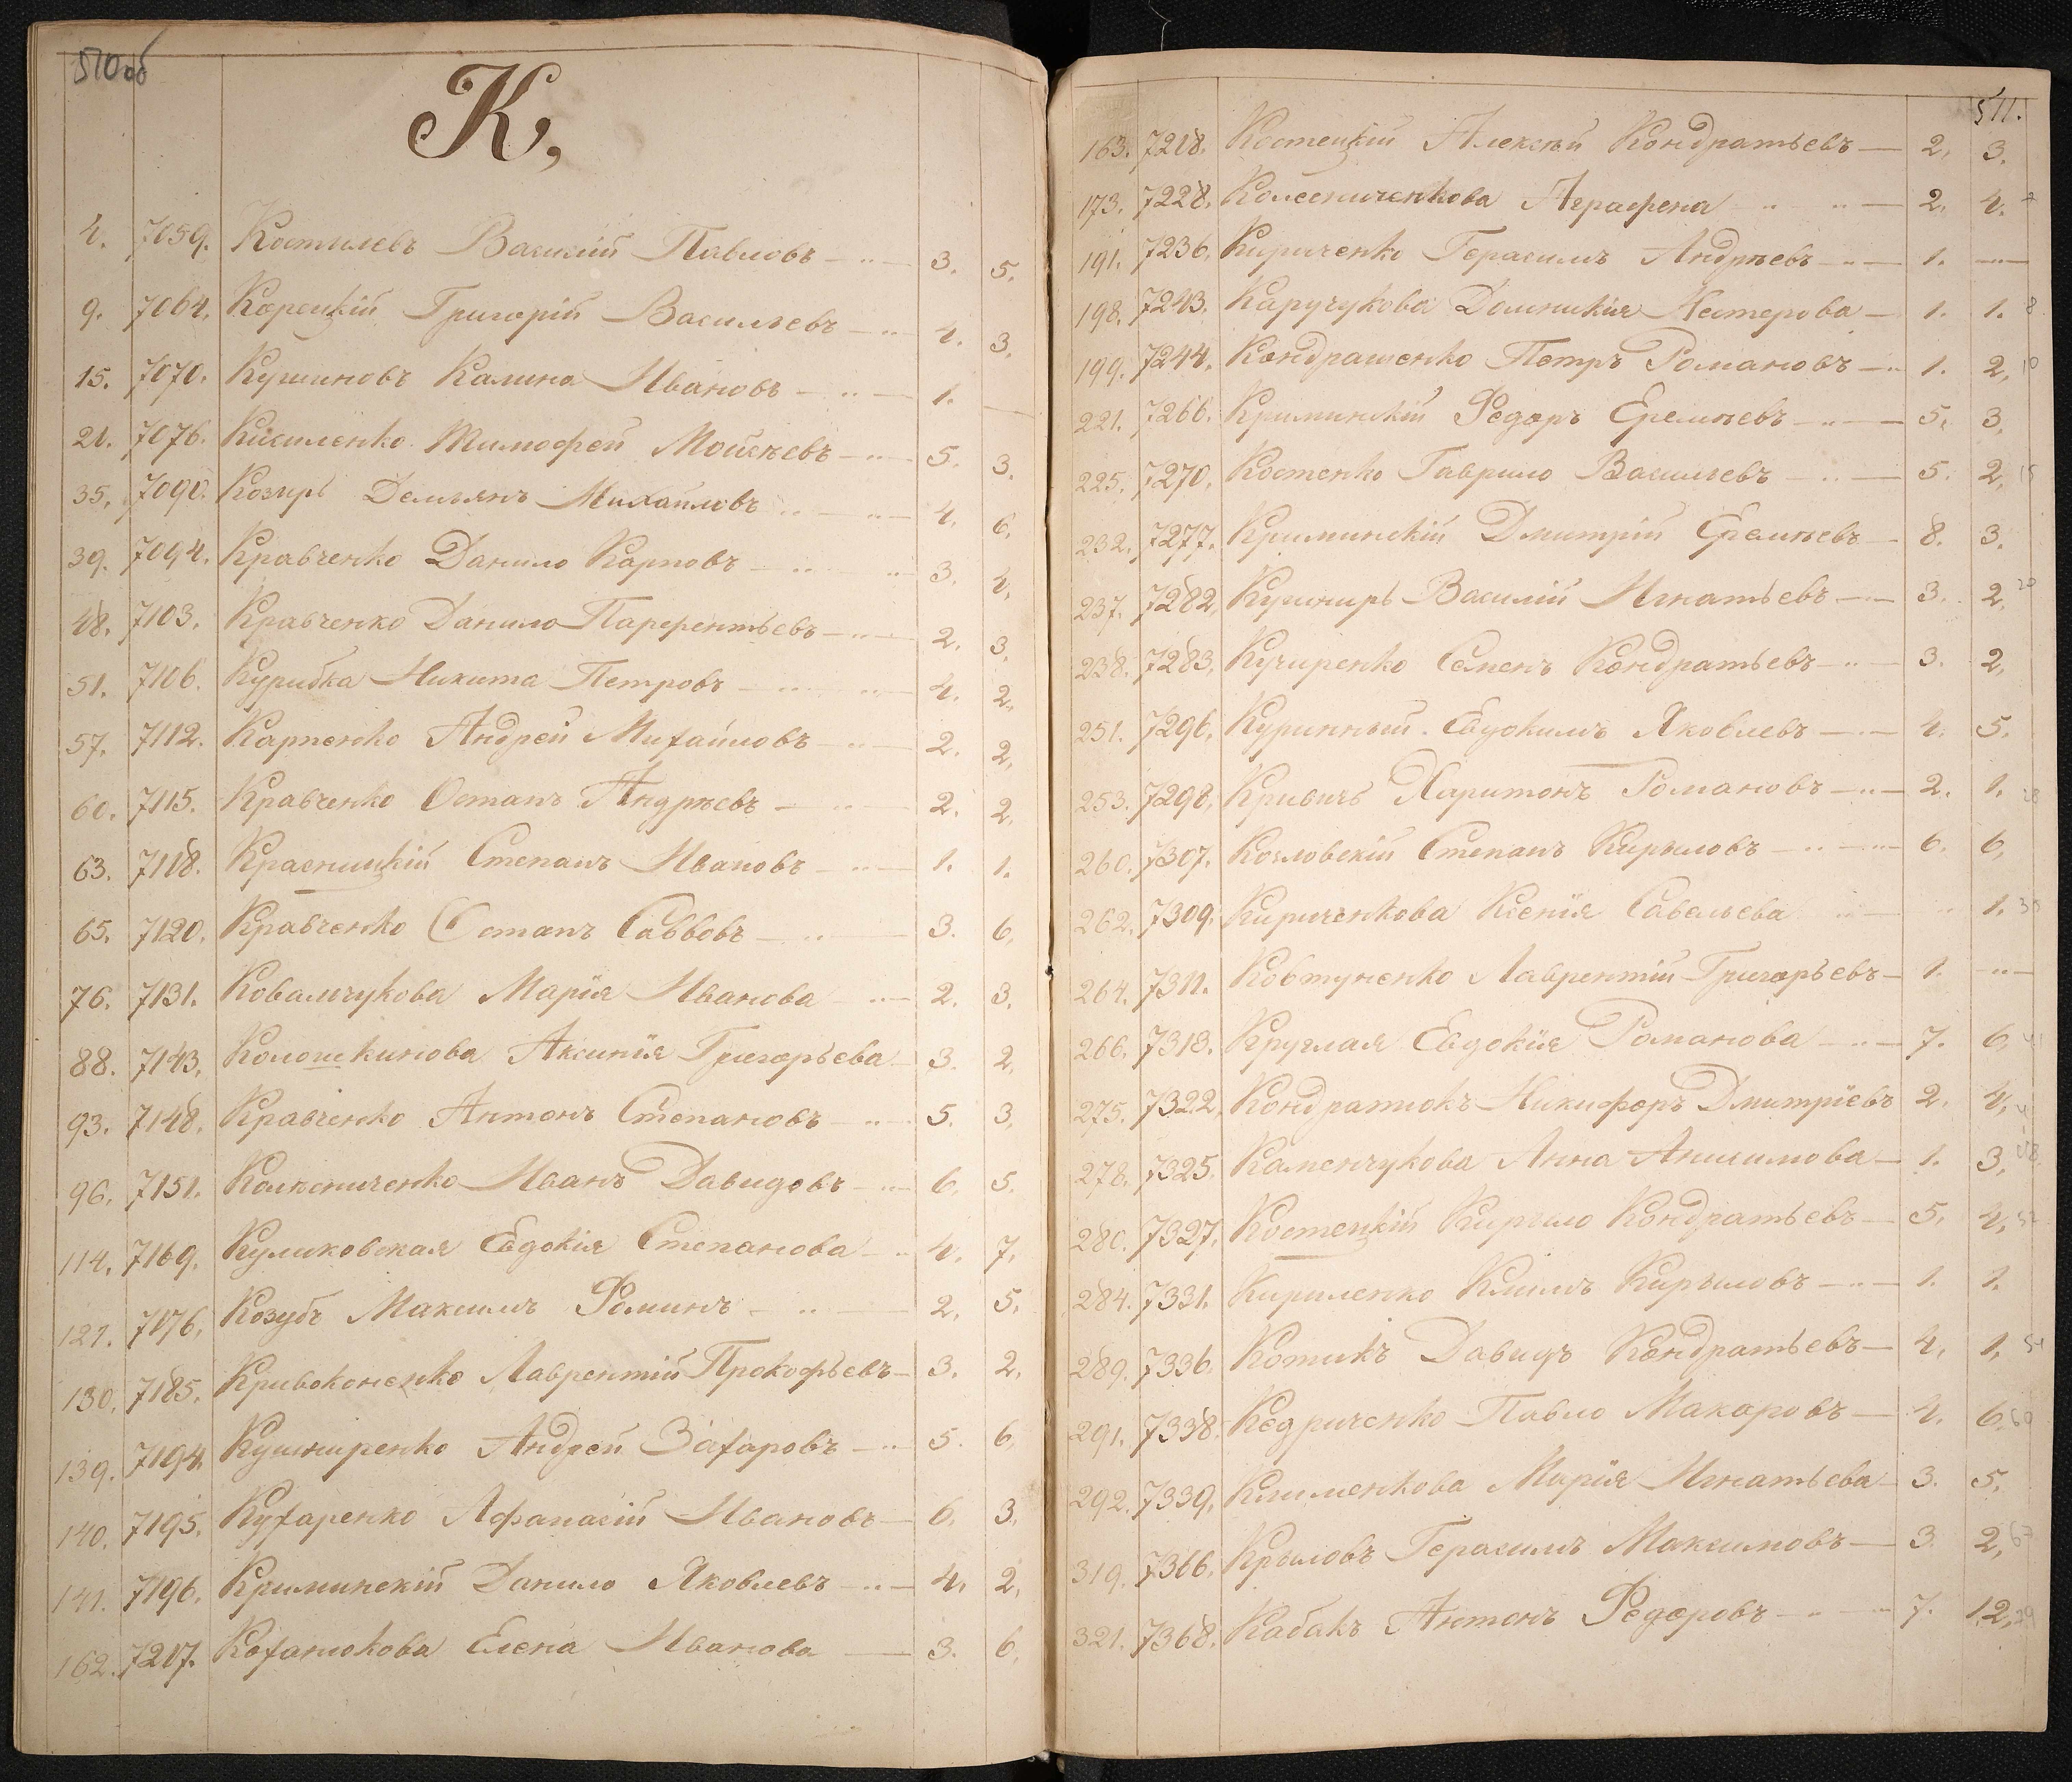 510об
К,
4. 7059. Костилевъ Василій Павловъ 3. 5.
9. 7064. Корецкій Григорій Васильевъ 4. 3.
15. 7070. Кушновъ Калина Ивановъ 1. —
21. 7076. Кисиленко Тимофей Мойсѣевъ 5. 3.
35. 7090. Козырь Демьянъ Михайловъ 4. 6.
39. 7094. Кравченко Данило Карповъ 3. 4.
48. 7103. Кравченко Данило Парфентьевъ 2. 3.
51. 7106. Курибка Никита Петровъ 4. 2.
57. 7112. Карпенко Андрей Михайловъ 2. 2.
60. 7115. Кравченко Остапъ Андрѣевъ 2. 2.
63. 7118. Красницкій Степанъ Ивановъ 1. 1.
65. 7120. Кравченко Остапъ Саввовъ 3. 6.
76. 7131. Ковальчукова Марія Иванова 2. 3.
88. 7143. Колошкинова Аксинія Григорьева 3. 2.
93. 7148. Кравченко Антонъ Степановъ 5. 3.
96. 7151. Колѣсниченко Иванъ Давидовъ 6. 5.
114. 7169. Куликовская Евдокія Степанова 4. 7.
121. 7176. Козубъ Максимъ Фоминъ 2. 5.
130. 7185. Кривоконенко Лаврентій Прокофьевъ 3. 2.
139. 7194. Кушниренко Андрей Захаровъ 5. 6.
140. 7195. Кухаренко Афанасій Ивановъ 6. 3.
141. 7196. Криминскій Данило Яковлевъ 4. 2.
162. 7217. Коханюкова Елена Иванова 3. 6.
511.
163. 7218. Костецкій Алексѣй Кондратьевъ 2. 3.
173. 7228. Колесниченкова Аграфена 2. 4.
191. 7236. Кириченко Герасимъ Андрѣевъ 1. —
198. 7243. Каручукова Домникія Нестерова 1. 1.
199. 7244. Кондрашенко Петръ Романовъ 1. 2.
221. 7266. Криминскій Федоръ Еремѣевъ 5. 3.
225. 7270. Костенко Гаврило Васильевъ 5. 2.
232. 7277. Криминскій Дмитрій Еремѣевъ 8. 3.
237. 7282. Кушниръ Василій Игнатьевъ 3. 2.
238. 7283. Кучиренко Семенъ Кондратьевъ 3. 2.
251. 7296. Куринный Евдокимъ Яковлевъ 4. 5.
253. 7298. Кривичъ Харитонъ Романовъ 2. 1.
260. 7307. Козловскій Степанъ Кирыловъ 6. 6.
262. 7309. Кириченкова Ксенія Савельева 1.
264. 7311. Ковтуненко Лаврентій Григорьевъ 1. —
266. 7313. Круглая Евдокія Романова 7. 6.
275. 7322. Кондратюкъ Никифоръ Дмитріевъ 2. 4.
278. 7325. Каменчукова Анна Анисимова 1. 3.
280. 7327. Костецкій Кирыло Кондратьевъ 5. 4.
284. 7331. Кириленко Климъ Кирыловъ 1. 1.
289. 7336. Котикъ Давидъ Кондратьевъ 4. 1.
291. 7338. Кедриченко Павло Макаровъ 4. 6.
292. 7339. Клименкова Марія Игнатьева 3. 5.
319. 7366. Крыловъ Герасимъ Максимовъ 3. 2.
321. 7368. Кабакъ Антонъ Федоровъ 7. 12.